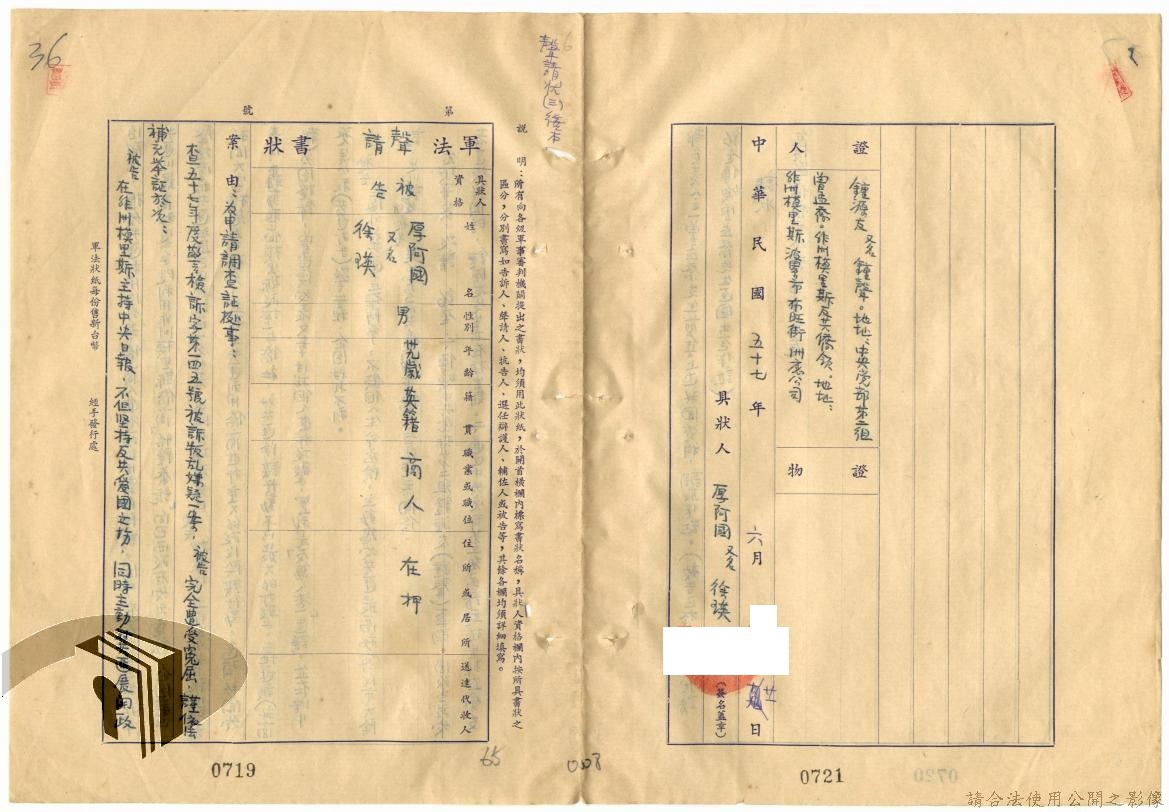 36
聲請狀(三)繕本
說明：所有向各級軍事審判機關提出之書狀，均須用此狀紙，於開首橫欄內標寫書狀名稱，具狀人資格欄內按所具書狀之
區分，分別書寫如告訴人、聲請人、抗告人、選任辯護人、輔佐人或被告等，其餘各欄均須詳細填寫。
第 號
軍法 聲請 書狀
具狀人資格 姓名 性別 年齡 籍貫 職業或職位 住所或居所 送達代收人
被告 厚阿國 又名 徐瑛 男 卅九歲 英籍 商人 在押
案由：為申請調查証據事：
查五十七年度警檢訴字第一四五號被訴叛亂嫌疑一案，被告完全遭受冤屈，謹依法
補充舉証於次：
被告在非洲模里斯主持中央日報，不但堅持反共愛國立場，同時主動
軍法狀紙每份售新台幣 經手發行處
0719
65
008
證人
鍾源友 又名鍾聲。地址：中央党部第二組
曾孟喬。非洲模里斯反共僑領。地址：
非洲模里斯波累市布旺街洲豪公司
證物
中華民國五十七年六月廿日
具狀人 厚阿國 又名 徐瑛
(簽名蓋章)
0721
0720
請合法使用公開之影像